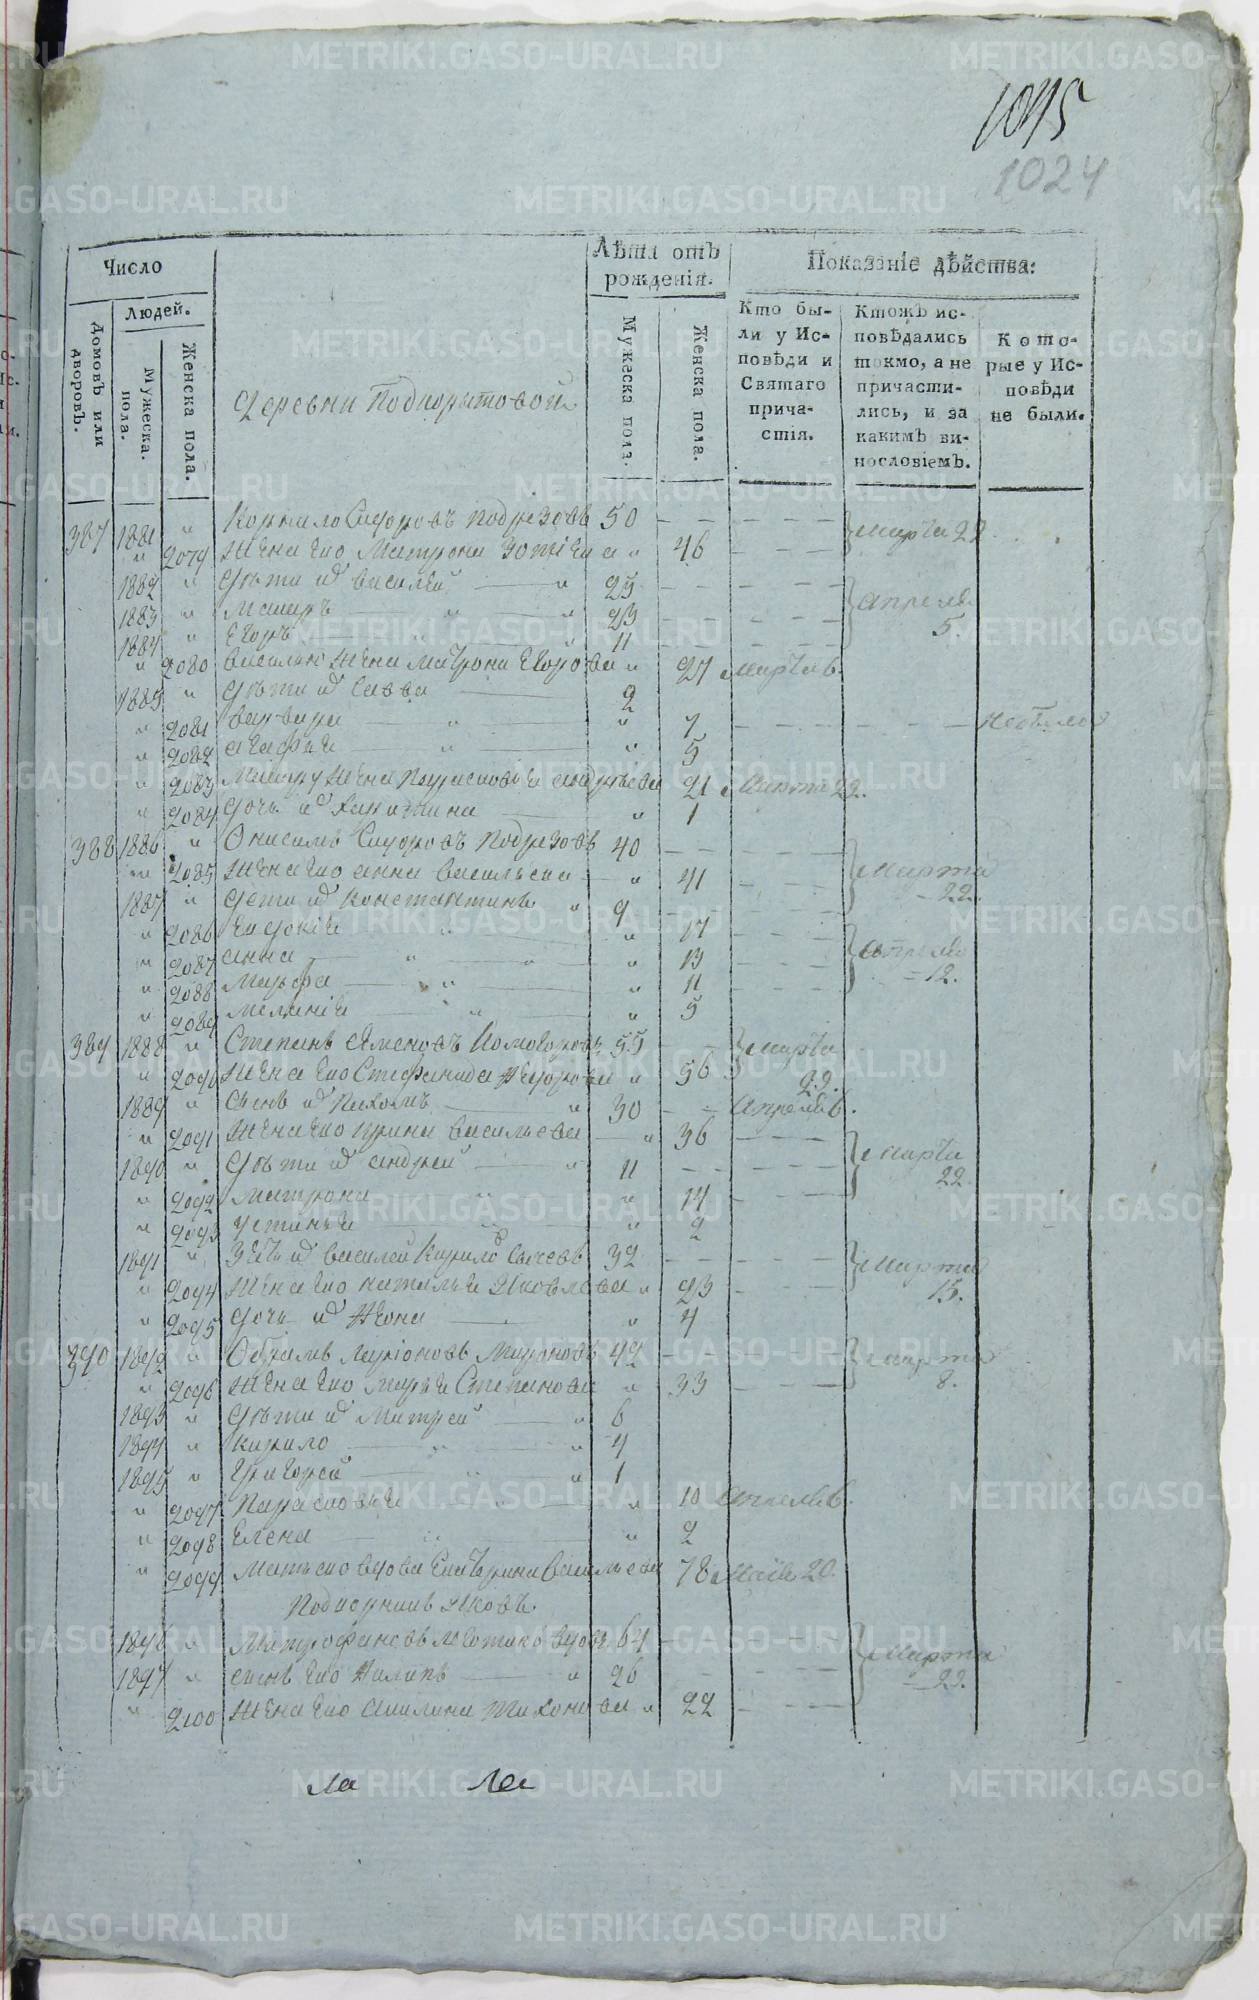 1045
1024
Число
Людей.
Домовъ или дворовъ.
Мужеска. пола.
Женска пола.
Деревни Подкорытовой
Лѣта отъ рожденія.
Мужеска пола.
Женска пола.
Показаніе дѣйства:
Кто были у Исповѣди и Святаго причастія.
Ктожъ исповѣдались токмо, а не причастились, и за какимъ винословіемъ.
Которые у Исповѣди не были.
387 1881 " Корнило Сидоровъ Подрезовъ 50 Марта 22.
" 2079 Жена его Матрона Зотіева " 46
1882 " Дѣти их Василей " 25 Апреля
1883 " " " 23 5.
1884 " Егоръ " " 11
" 2080 Василью жена Матрона Егорова " 27 Марта 6.
1885 " Дѣти их Савва 2
" 2081 Варвара " " 7 небыла
" 2082 Агафія " " 5
" 2083 жена Парасковья Андреева 21 Марта 22.
" 2084 Дочь их " 1
388 1886 " Онисимъ Сидоровъ Подрезовъ 40
" 2085 Жена его Анна Васильева " 41 Марта
1887 " Дети их Констактинъ " 9 22.
" 2086 Евдокія " " 17
" 2087 Анна " " " 13 Апреля
" 2088 Марфа " " 11 12.
" 2089 Меланія " " 5
389 1888 " Степанъ Семеновъ 55 Марта
" 2090 Жена его Стефанида Федорова " 56 22.
1889 " сынъ их Пахомъ " 30 Апреля 6.
" 2091 Жена его Ирина Васильева " 36
1890 " Дѣти их Андрей " 11 Марта
" 2092 Матрона " " 14 22.
" 2093 Устинья " " 2
1891 " Зять их Василей Кирилов 32 Марта
" 2094 Жена его Наталья Яковлева " 23 15.
" 2095 Дочь их " 4
390 1892 " Обрамъ Ларіоновъ Мироновъ 42 Марта
" 2096 Жена его Марья Степанова " 33 8.
1893 " Дѣти их Митрей " 6
1894 " Кирило " " 4
1895 " Григорей " " 1
" 2097 Парасковья " " 10 Апреля 6.
" 2098 Елена " " 2
" 2099 Мать его вдова Екатерина Васильева 78 Маія 20.
1896 " вдовъ 64 Марта
1897 " сынъ его Филипъ " 26 22.
" 2100 Жена его Акилина Тихонова " 22
ла ла
METRIKI.GASO-URAL.RU